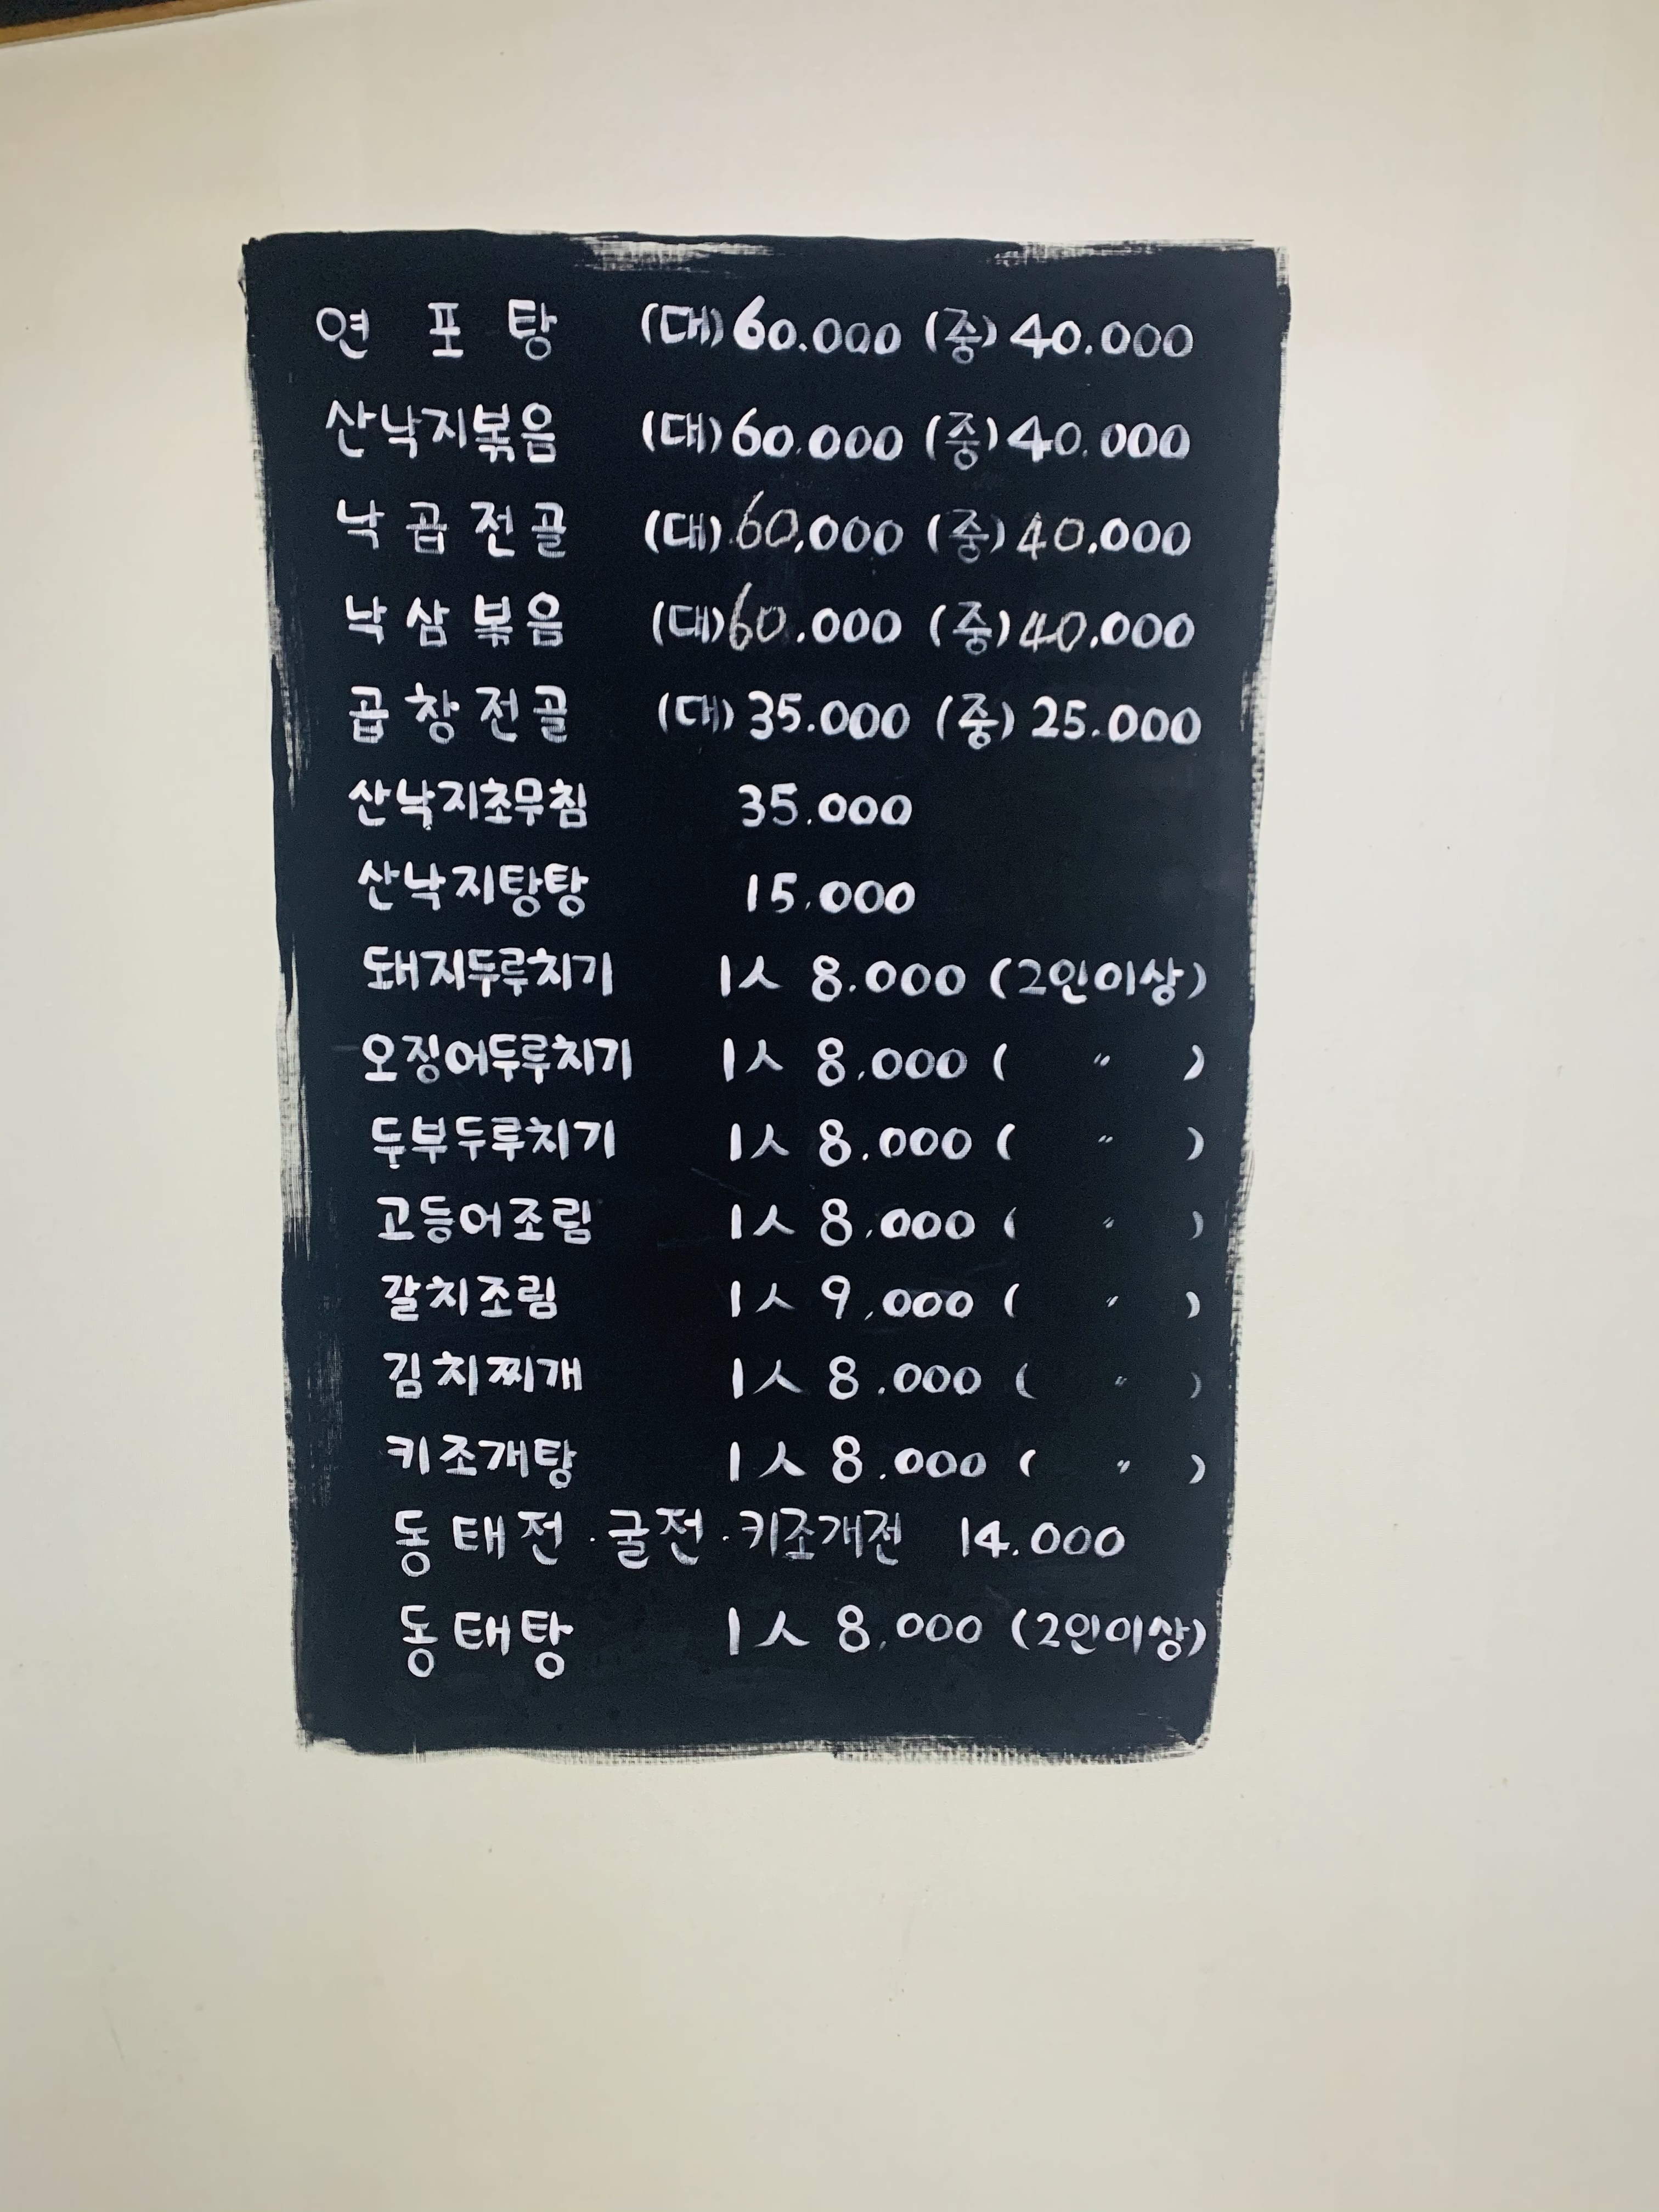 연 포 탕 (대) 60.000 (중) 40.000
산낙지볶음 (대) 60.000 (중) 40.000
낙 곱 전 골 (대) 60.000 (중) 40.000
낙 삼 볶 음 (대) 60.000 (중) 40.000
곱 창 전 골 (대) 35.000 (중) 25.000
산낙지초무침 35.000
산낙지탕탕 15.000
돼지두루치기 1人 8.000 (2인이상)
오징어두루치기 1人 8.000 ( 〃 )
두부두루치기 1人 8.000 ( 〃 )
고등어조림 1人 8.000 ( 〃 )
갈치조림 1人 9.000 ( 〃 )
김치찌개 1人 8.000 ( 〃 )
키조개탕 1人 8.000 ( 〃 )
동태전·굴전·키조개전 14.000
동태탕 1人 8.000 (2인이상)